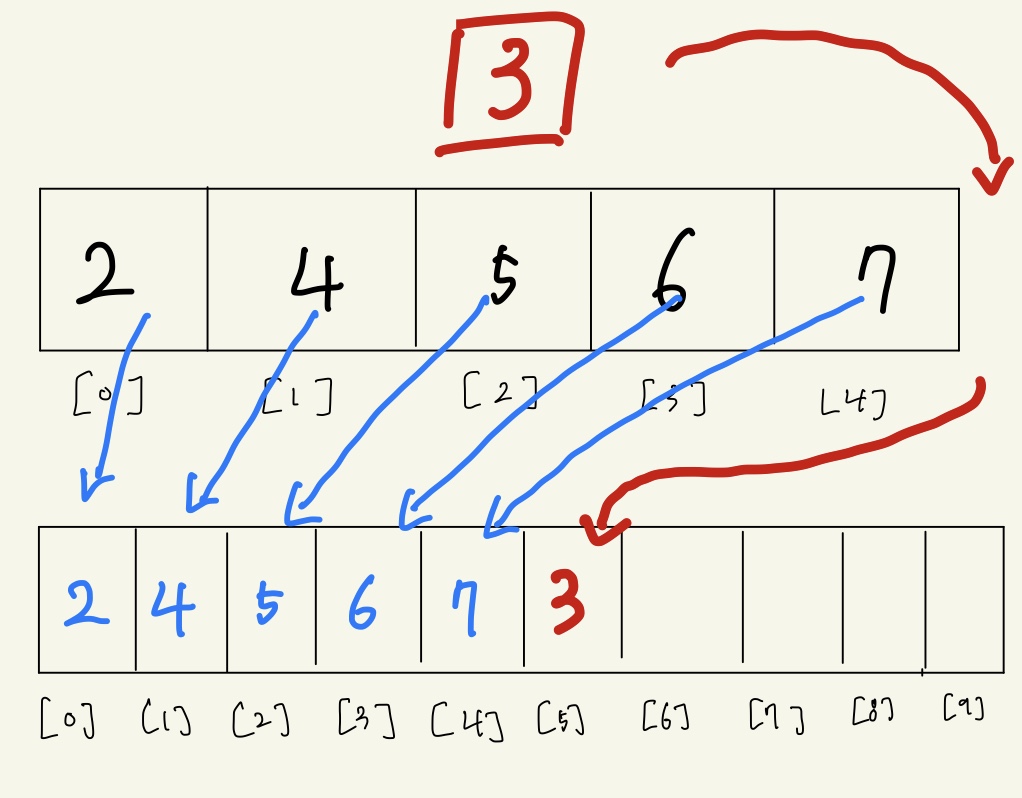 3
2 4 5 6 7
[0] [1] [2] [3] [4]
2 4 5 6 7 3
[0] [1] [2] [3] [4] [5] [6] [7] [8] [9]